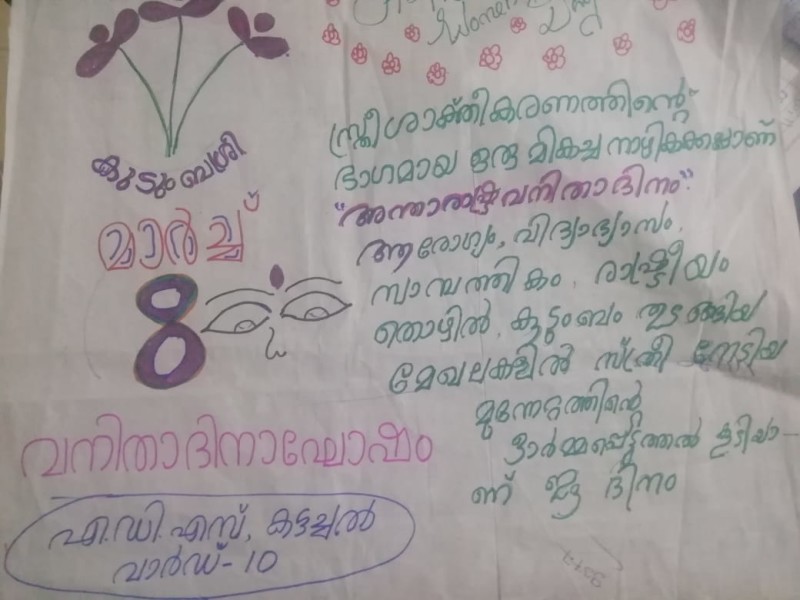 കുടുംബശ്രീ
മാർച്ച്
8
വനിതാദിനാഘോഷം
എ.ഡി.എസ്, കട്ടച്ചൽ
വാർഡ്-10
സ്ത്രീശാക്തീകരണത്തിന്റെ
ഭാഗമായ ഒരു മികച്ച നാഴികക്കല്ലാണ്
"അന്താരാഷ്ട്ര വനിതാദിനം".
ആരോഗ്യം, വിദ്യാഭ്യാസം,
സാമ്പത്തികം, രാഷ്ട്രീയം
തൊഴിൽ, കുടുംബം തുടങ്ങിയ
മേഖലകളിൽ സ്ത്രീ നേടിയ
മുന്നേറ്റത്തിന്റെ
ഓർമ്മപ്പെടുത്തൽ കൂടിയാ-
ണ് ഈ ദിനം